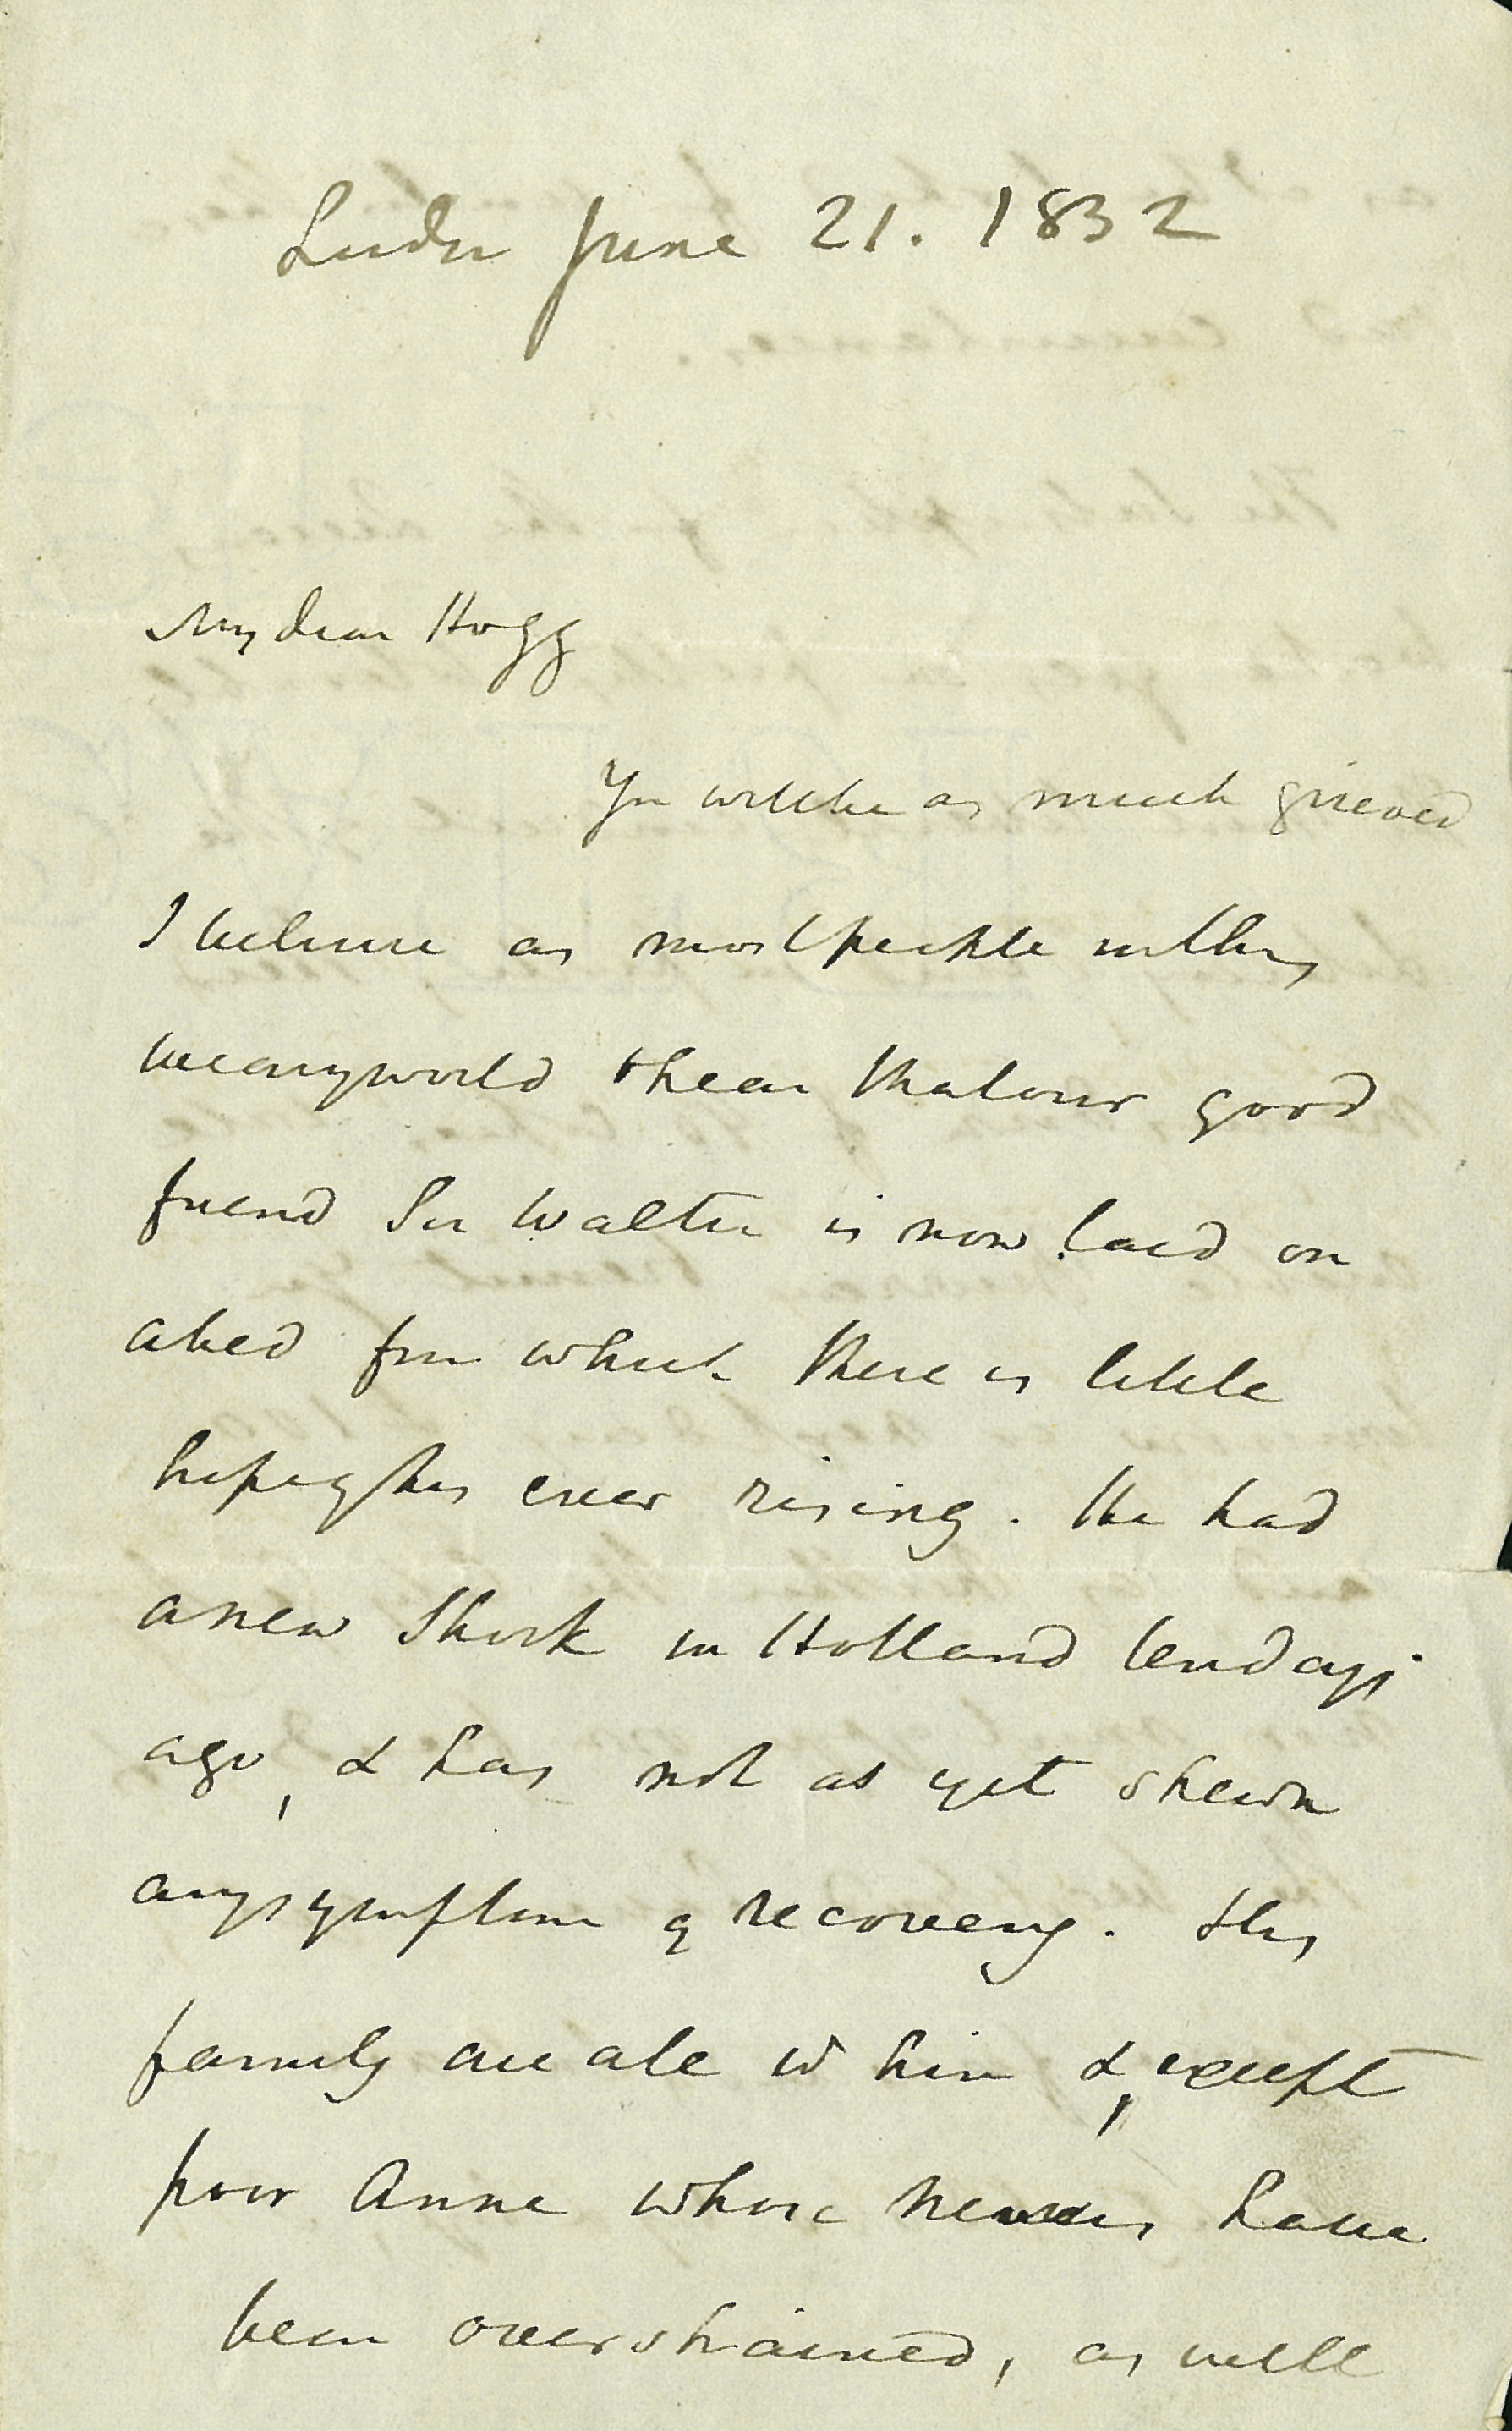 London June 21. 1832
My dear Hogg
You will be as much grieved
I believe as most people in this
weary world to hear that our good
friend Sir Walter is now laid on
a bed from which there is little
hope of his ever rising. He had
a new shock in Holland ten days
ago, & has not as yet shewn
any symptom of recovery. His
family are all w him &, except
poor Anne whose nerves have
been overstrained, as well